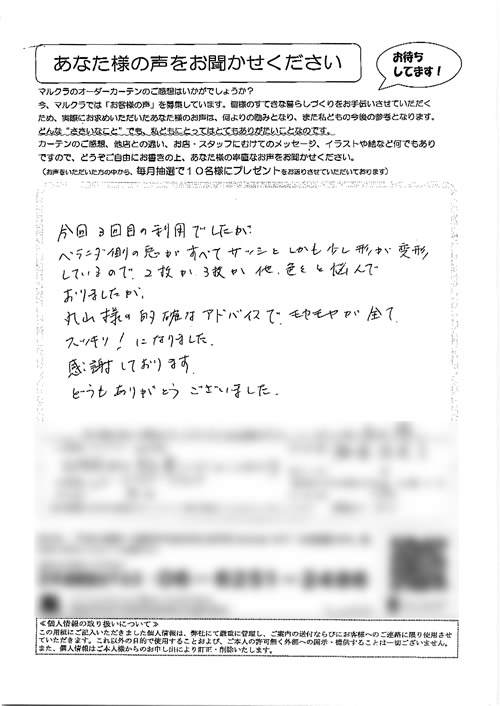 あなた様の声をお聞かせください
お待ち
してます!
マルクラのオーダーカーテンのご感想はいかがでしょうか?
今、マルクラでは「お客様の声」を募集しています。皆様のすてきな暮らしづくりをお手伝いさせていただく
ため、実際にお求めいただいたあなた様のお声は、何よりの励みとなり、また私どもの今後の参考となります。
どんな“ささいなこと”でも、私どもにとってはとてもありがたいことなのです。
カーテンのご感想、他店との違い、お店・スタッフにむけてのメッセージ、イラストや絵など何でもあり
ですので、どうぞご自由にお書きの上、あなた様の率直なお声をお聞かせください。
(お声をいただいた方の中から、毎月抽選で10名様にプレゼントをお送りさせていただいております)
今回3回目の利用でしたが
ベランダ側の窓がすべてサッシとしかも少し形が変形
しているので、2枚か3枚か他、色をと悩んで
おりましたが、
丸山様の的確なアドバイスで、モヤモヤが全て
スッキリ!になりました。
感謝しております。
どうもありがとうございました。
06-6251-2486
≪個人情報の取り扱いについて≫
この用紙にご記入いただきました個人情報は、弊社にて厳重に管理し、ご案内の送付ならびにお客様へのご連絡に限り使用させ
ていただきます。これ以外の目的で使用することおよび、ご本人の許可無く外部への開示・提供することは一切ございません。
また、個人情報はご本人様からのお申し出により訂正・削除いたします。